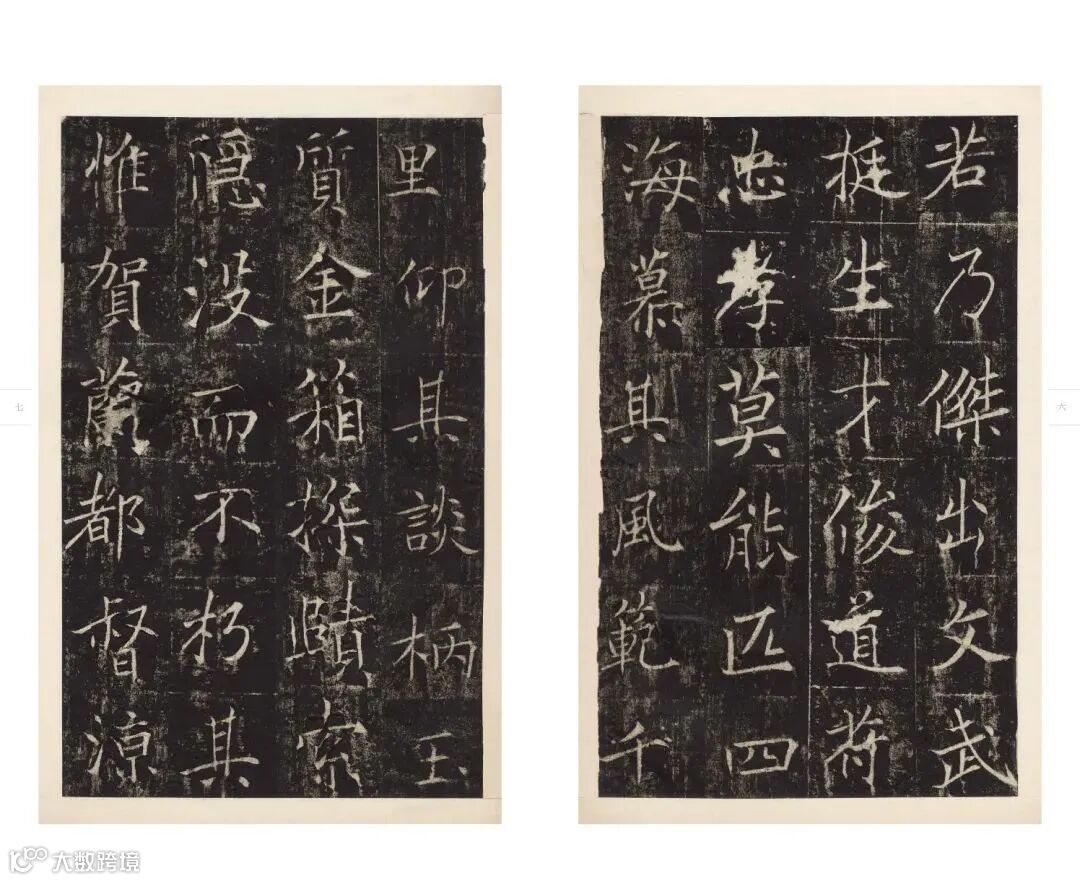 若乃傑出文武
挺生才俊道苻
忠孝莫能匹四
海慕其風範千
里仰其談柄玉
質金箱探賾索
隱没而不朽其
惟賀蘭都督源
六
七
大数跨境